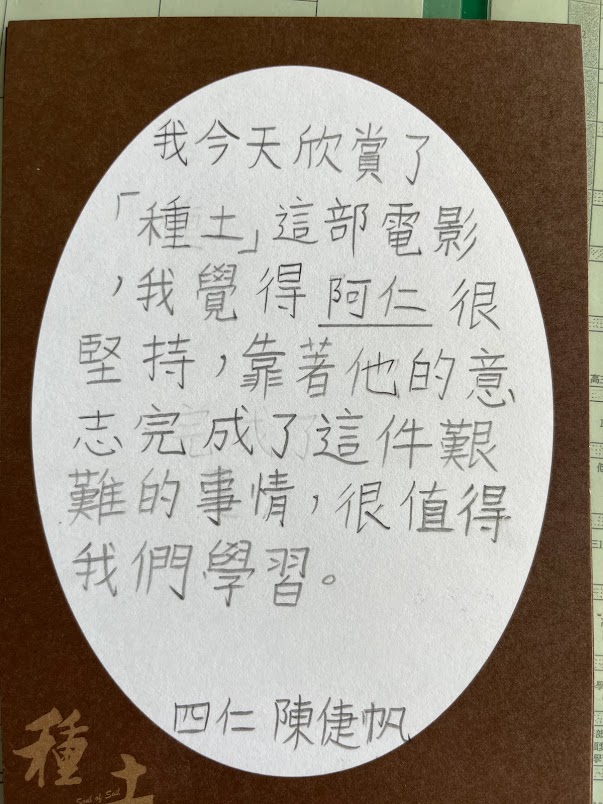 我今天欣賞了
「種土」這部電影
，我覺得阿仁很
堅持，靠著他的意
志完成了這件艱
難的事情，很值得
我們學習。
四仁 陳倢帆
種土
Soul of Soil